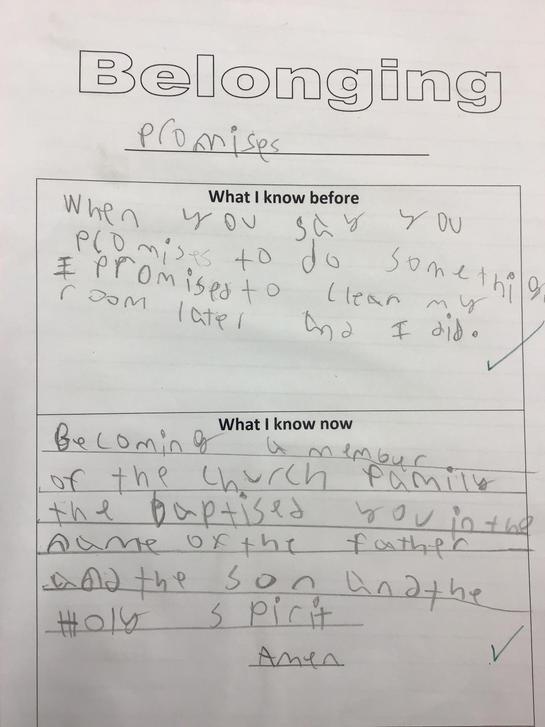 Belonging
promises
What I know before
When you say you
promises to do somethig
I promised to clean my
room later and I did.
What I know now
Becoming a member
of the church family
the baptised you in the
name of the father
and the son and the
Holy spirit
Amen